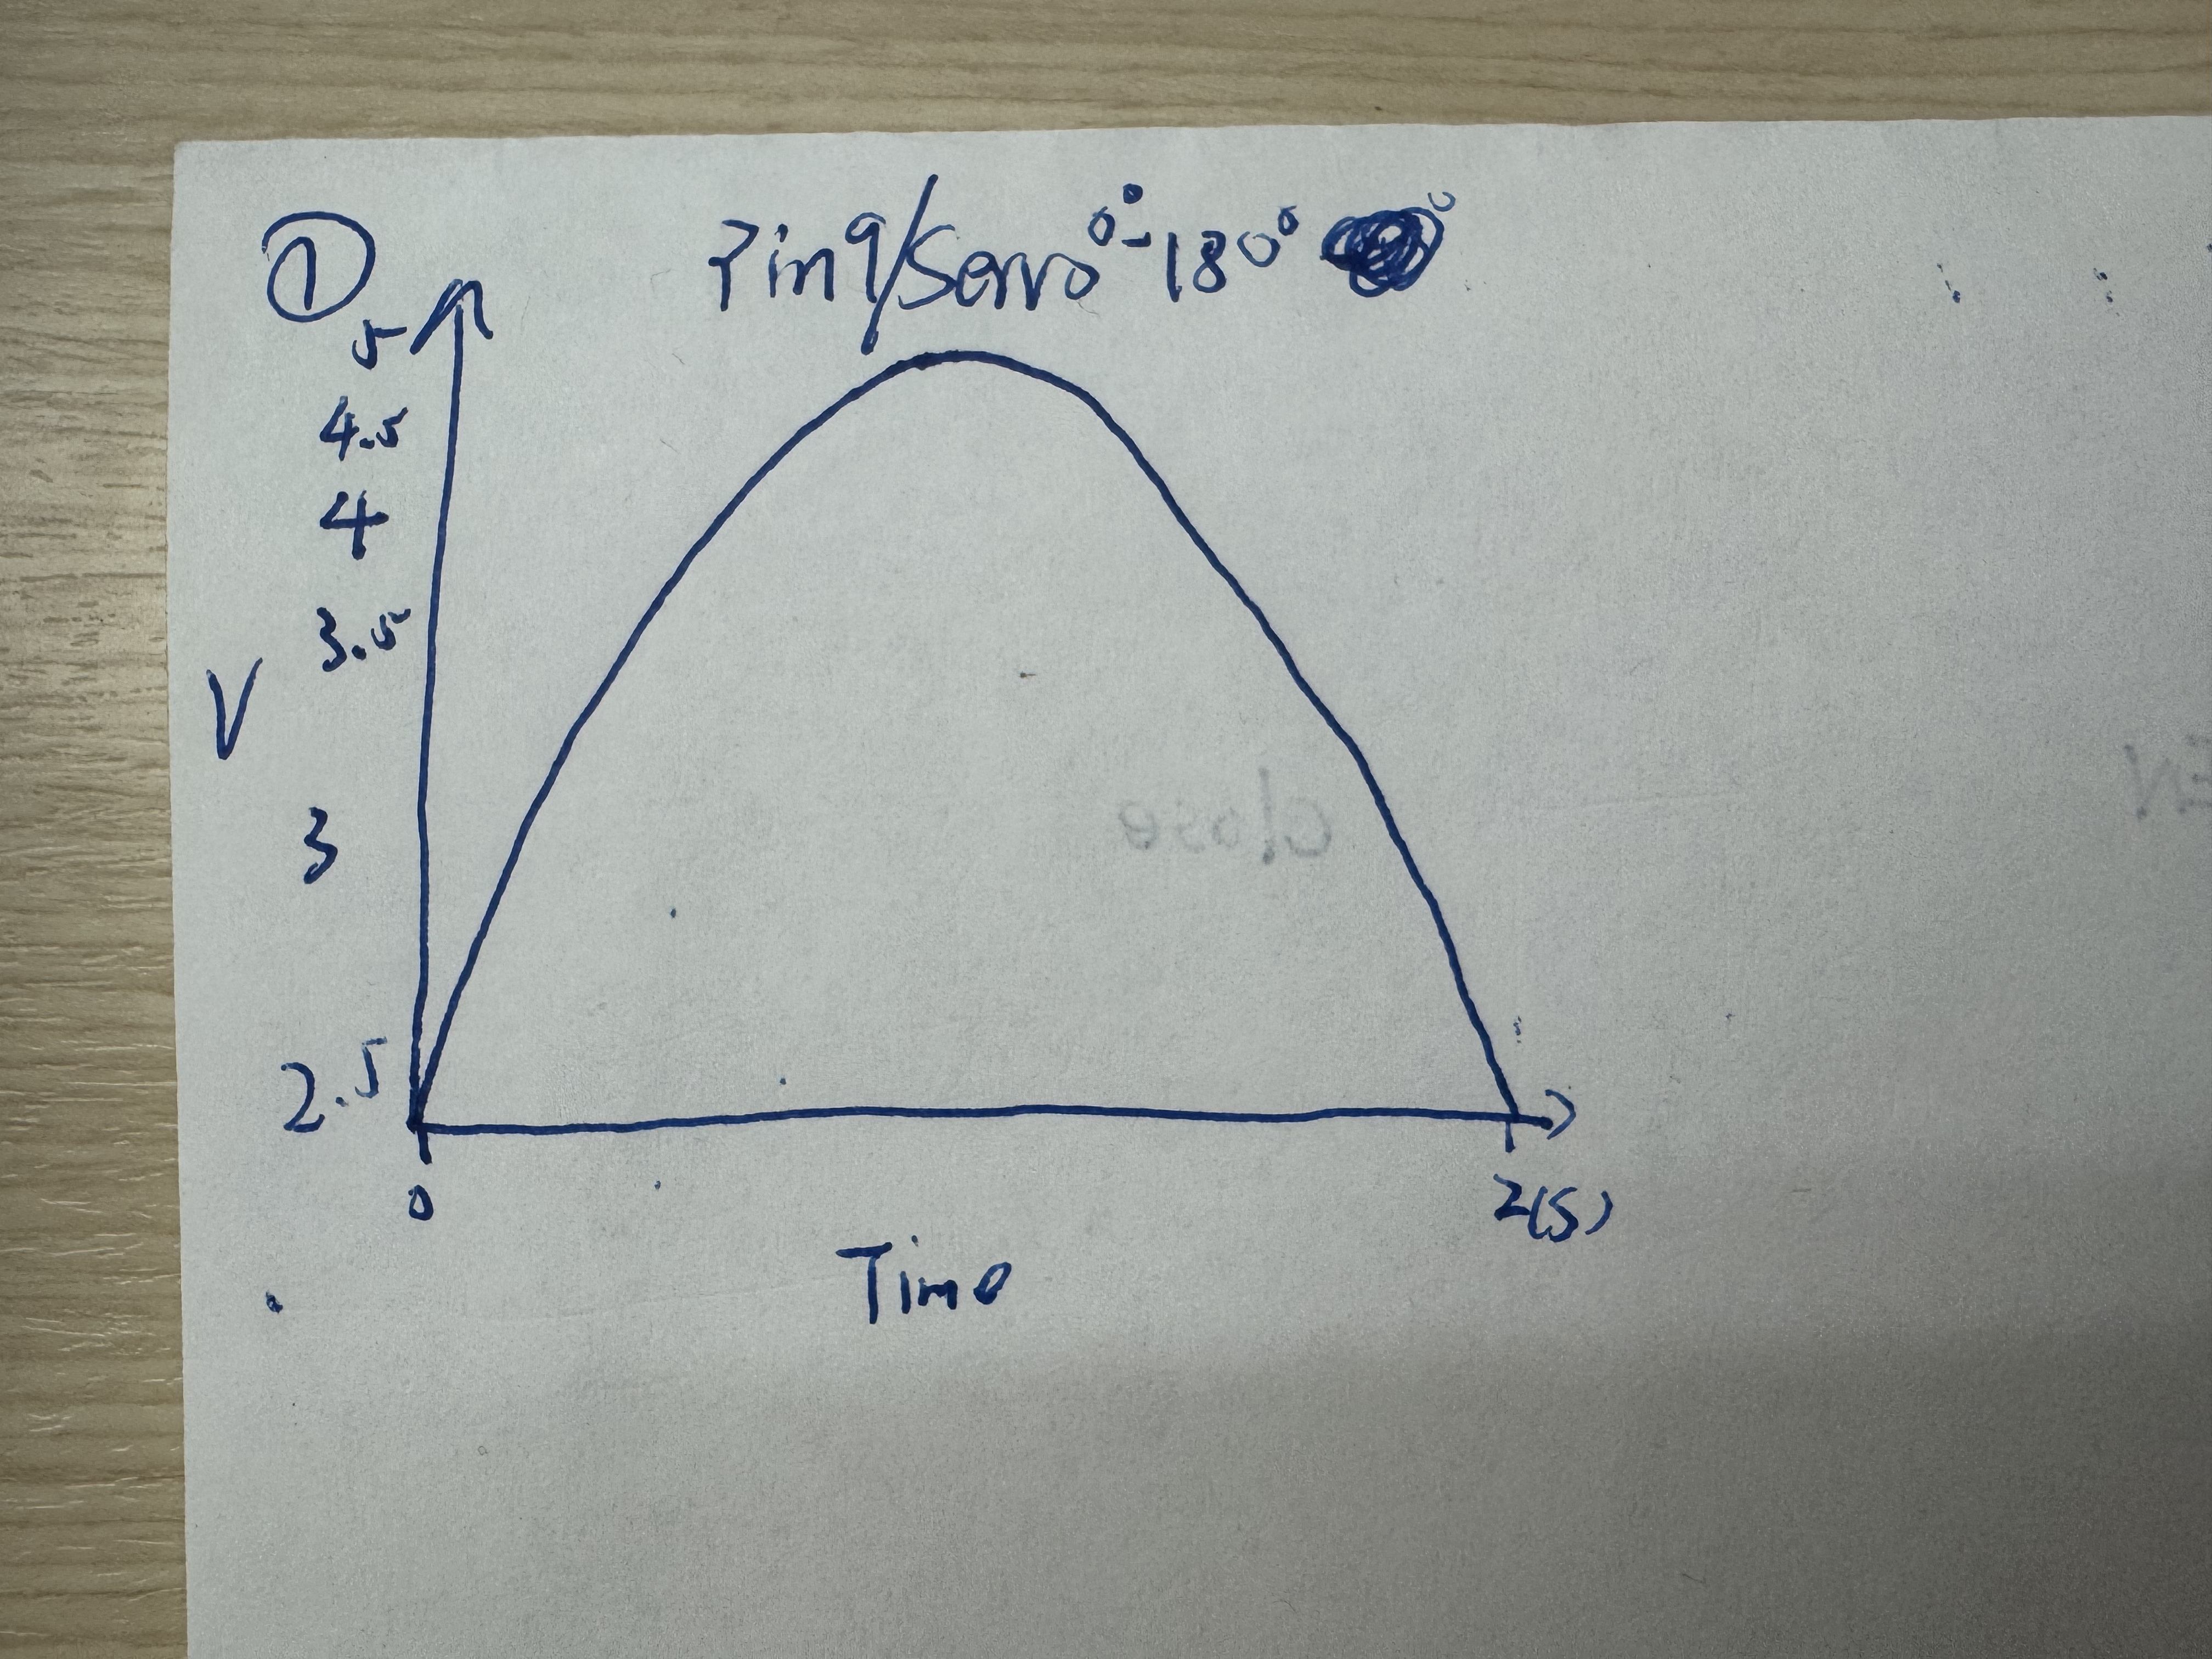 ①
Pin9/Servo 0°-180°
5
4.5
4
3.5
V
3
2.5
0
2(S)
Time
close